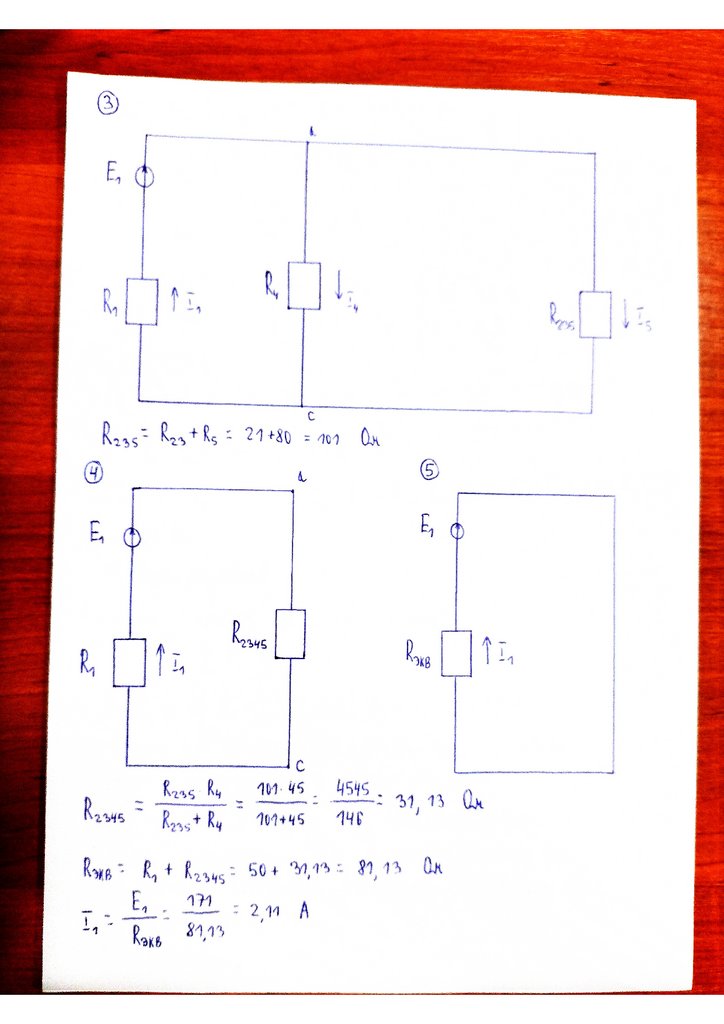 ③
a
E₁
R₄
↓ I₄
R₁
↑ I₁
R₂₃₅
↓ I₅
c
R₂₃₅ = R₂₃ + R₅ = 21 + 80 = 101 Ом
④
a
E₁
R₂₃₄₅
R₁
↑ I₁
c
⑤
E₁
Rэкв
↑ I₁
R₂₃₄₅ = R₂₃₅ · R₄ / R₂₃₅ + R₄ = 101 · 45 / 101 + 45 = 4545 / 146 = 31,13 Ом
Rэкв = R₁ + R₂₃₄₅ = 50 + 31,13 = 81,13 Ом
I₁ = E₁ / Rэкв = 171 / 81,13 = 2,11 А